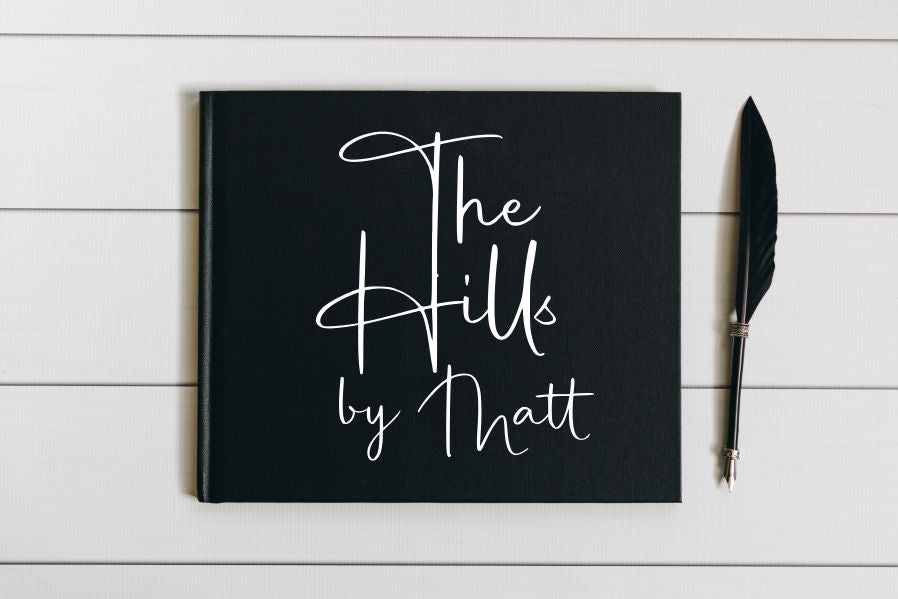 The
Hills
by Matt